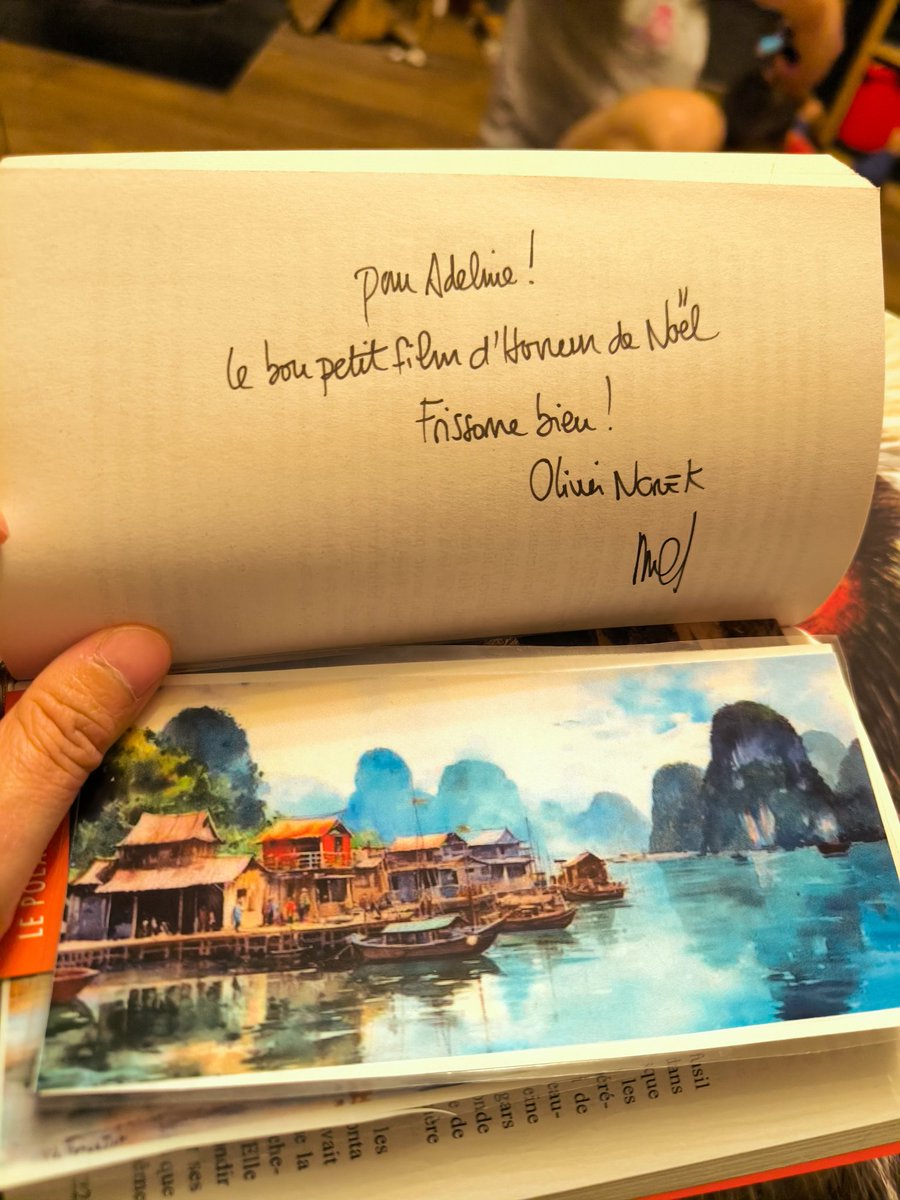 pour Adeline !
le bon petit film d'Horreur de Noël
Frissonne bien !
Olivier NOREK
LE POL
fusil
dans
que
les
éré-
i de
eau-
gars
eine
onde
e de
ère
les
onta
vait
e la
che-
Elle
ndir
ses
que
ême